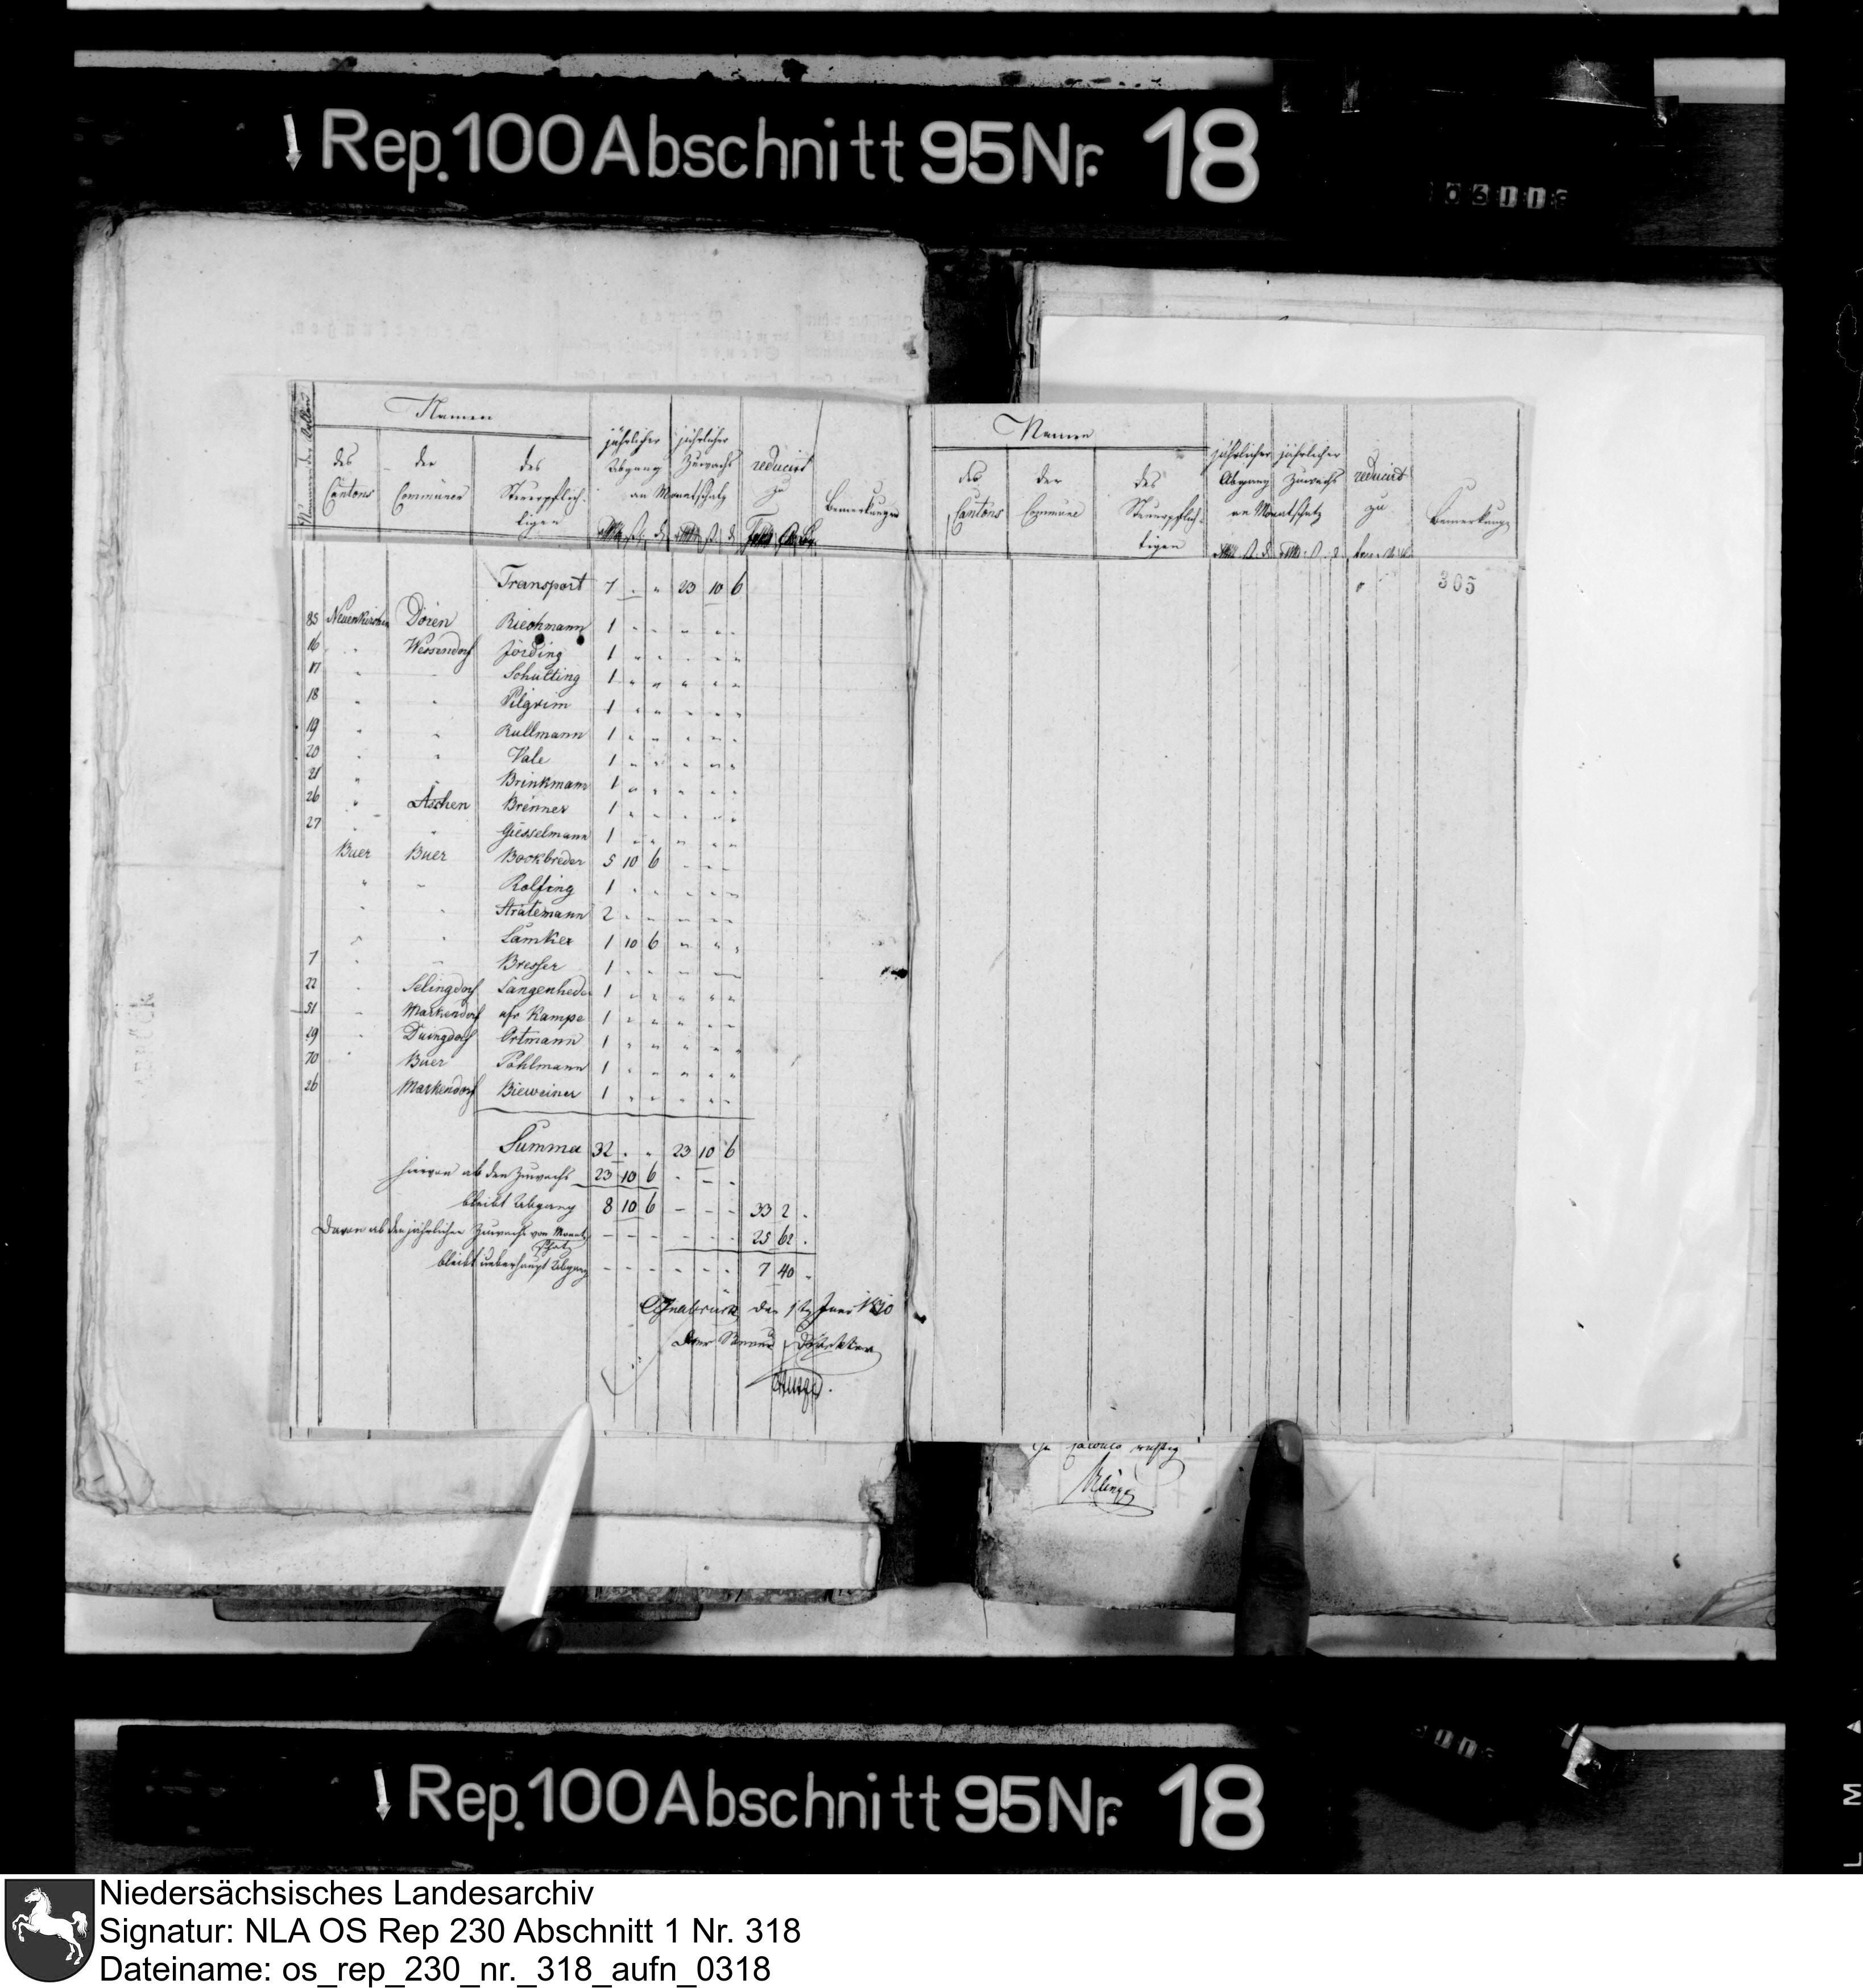 Rep. 100 Abschnitt 95 Nr. 18
Namen
des Cantons
der Commünen
des Steuerpflichtigen
jährlicher Abgang
jährlicher Zuwachs
an Monatschatz
reducirt zu
Bemerkungen
Transport 7 " " 23 10 6
85 Neuenkirchen Dören Riechmann 1 " " " " "
16 " Wessendorf Jörding 1 " " " " "
17 " " Schulting 1 " " " " "
18 " " Pilgrim 1 " " " " "
19 " " Rullmann 1 " " " " "
20 " " Vale 1 " " " " "
21 " " Brinkmann 1 " " " " "
26 " Aschen Brenner 1 " " " " "
27 " " Giesselmann 1 " " " " "
Buer Buer Bookbreder 5 10 6 " " "
" " Rolfing 1 " " " " "
" " Stratemann 2 " " " " "
" " Lamker 1 10 6 " " "
7 " " Bresser 1 " " " " "
22 " Selingdorf Langenheder 1 " " " " "
51 " Markendorf Kampe 1 " " " " "
29 " Duingdorf Ortmann 1 " " " " "
70 " Buer Pohlmann 1 " " " " "
26 Markendorf Bieweiner 1 " " " " "
Summa 32 " " 23 10 6
hievon ab den Zuwachs 23 10 6 - - -
bleibt Abgang 8 10 6 - - - 33 2 "
Davon ab den jährlichen Zuwachs von Monatschatz - - - - - - 25 62 "
bleibt ueberhaupt Abgang - - - - - - 7 40 "
Osnabrück den Juni 1810
Der Steuer Direktor
Namen
des Cantons
der Commüne
des Steuerpflichtigen
jährlicher Abgang
jährlicher Zuwachs
an Monatschatz
reducirt zu
Bemerkung
305
Calculo richtig
Rep. 100 Abschnitt 95 Nr. 18
Niedersächsisches Landesarchiv
Signatur: NLA OS Rep 230 Abschnitt 1 Nr. 318
Dateiname: os_rep_230_nr._318_aufn_0318